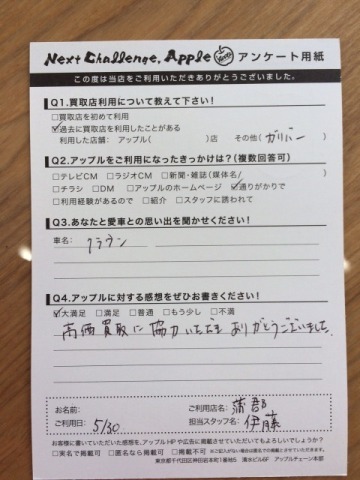 Next Challenge, Apple アンケート用紙
この度は当店をご利用いただきありがとうございました。
Q1.買取店利用について教えて下さい!
□買取店を初めて利用
☑過去に買取店を利用したことがある
利用した店舗: アップル( )店 その他( ガリバー )
Q2.アップルをご利用になったきっかけは?(複数回答可)
□テレビCM □ラジオCM □新聞・雑誌(媒体名 )
□チラシ □DM □アップルのホームページ ☑通りがかりで
□利用経験があるので □紹介 □スタッフに誘われて
Q3.あなたと愛車との思い出を聞かせください!
車名: クラウン
Q4.アップルに対する感想をぜひお書きください!
☑大満足 □満足 □普通 □もう少し □不満
高価買取に協力いただき ありがとうございました。
お名前:
ご利用店名: 蒲郡
ご利用日: 5/30
担当スタッフ名: 伊藤
お客様に書いていただいた感想を、アップルHPや広告に掲載させていただいてもよろしいでしょうか?
□実名で掲載可 □匿名なら掲載可 □掲載不可 ※ご記入がない場合は匿名での掲載とさせていただきます。
東京都千代田区神田岩本町1番地5 清水ビル6F アップルチェーン本部